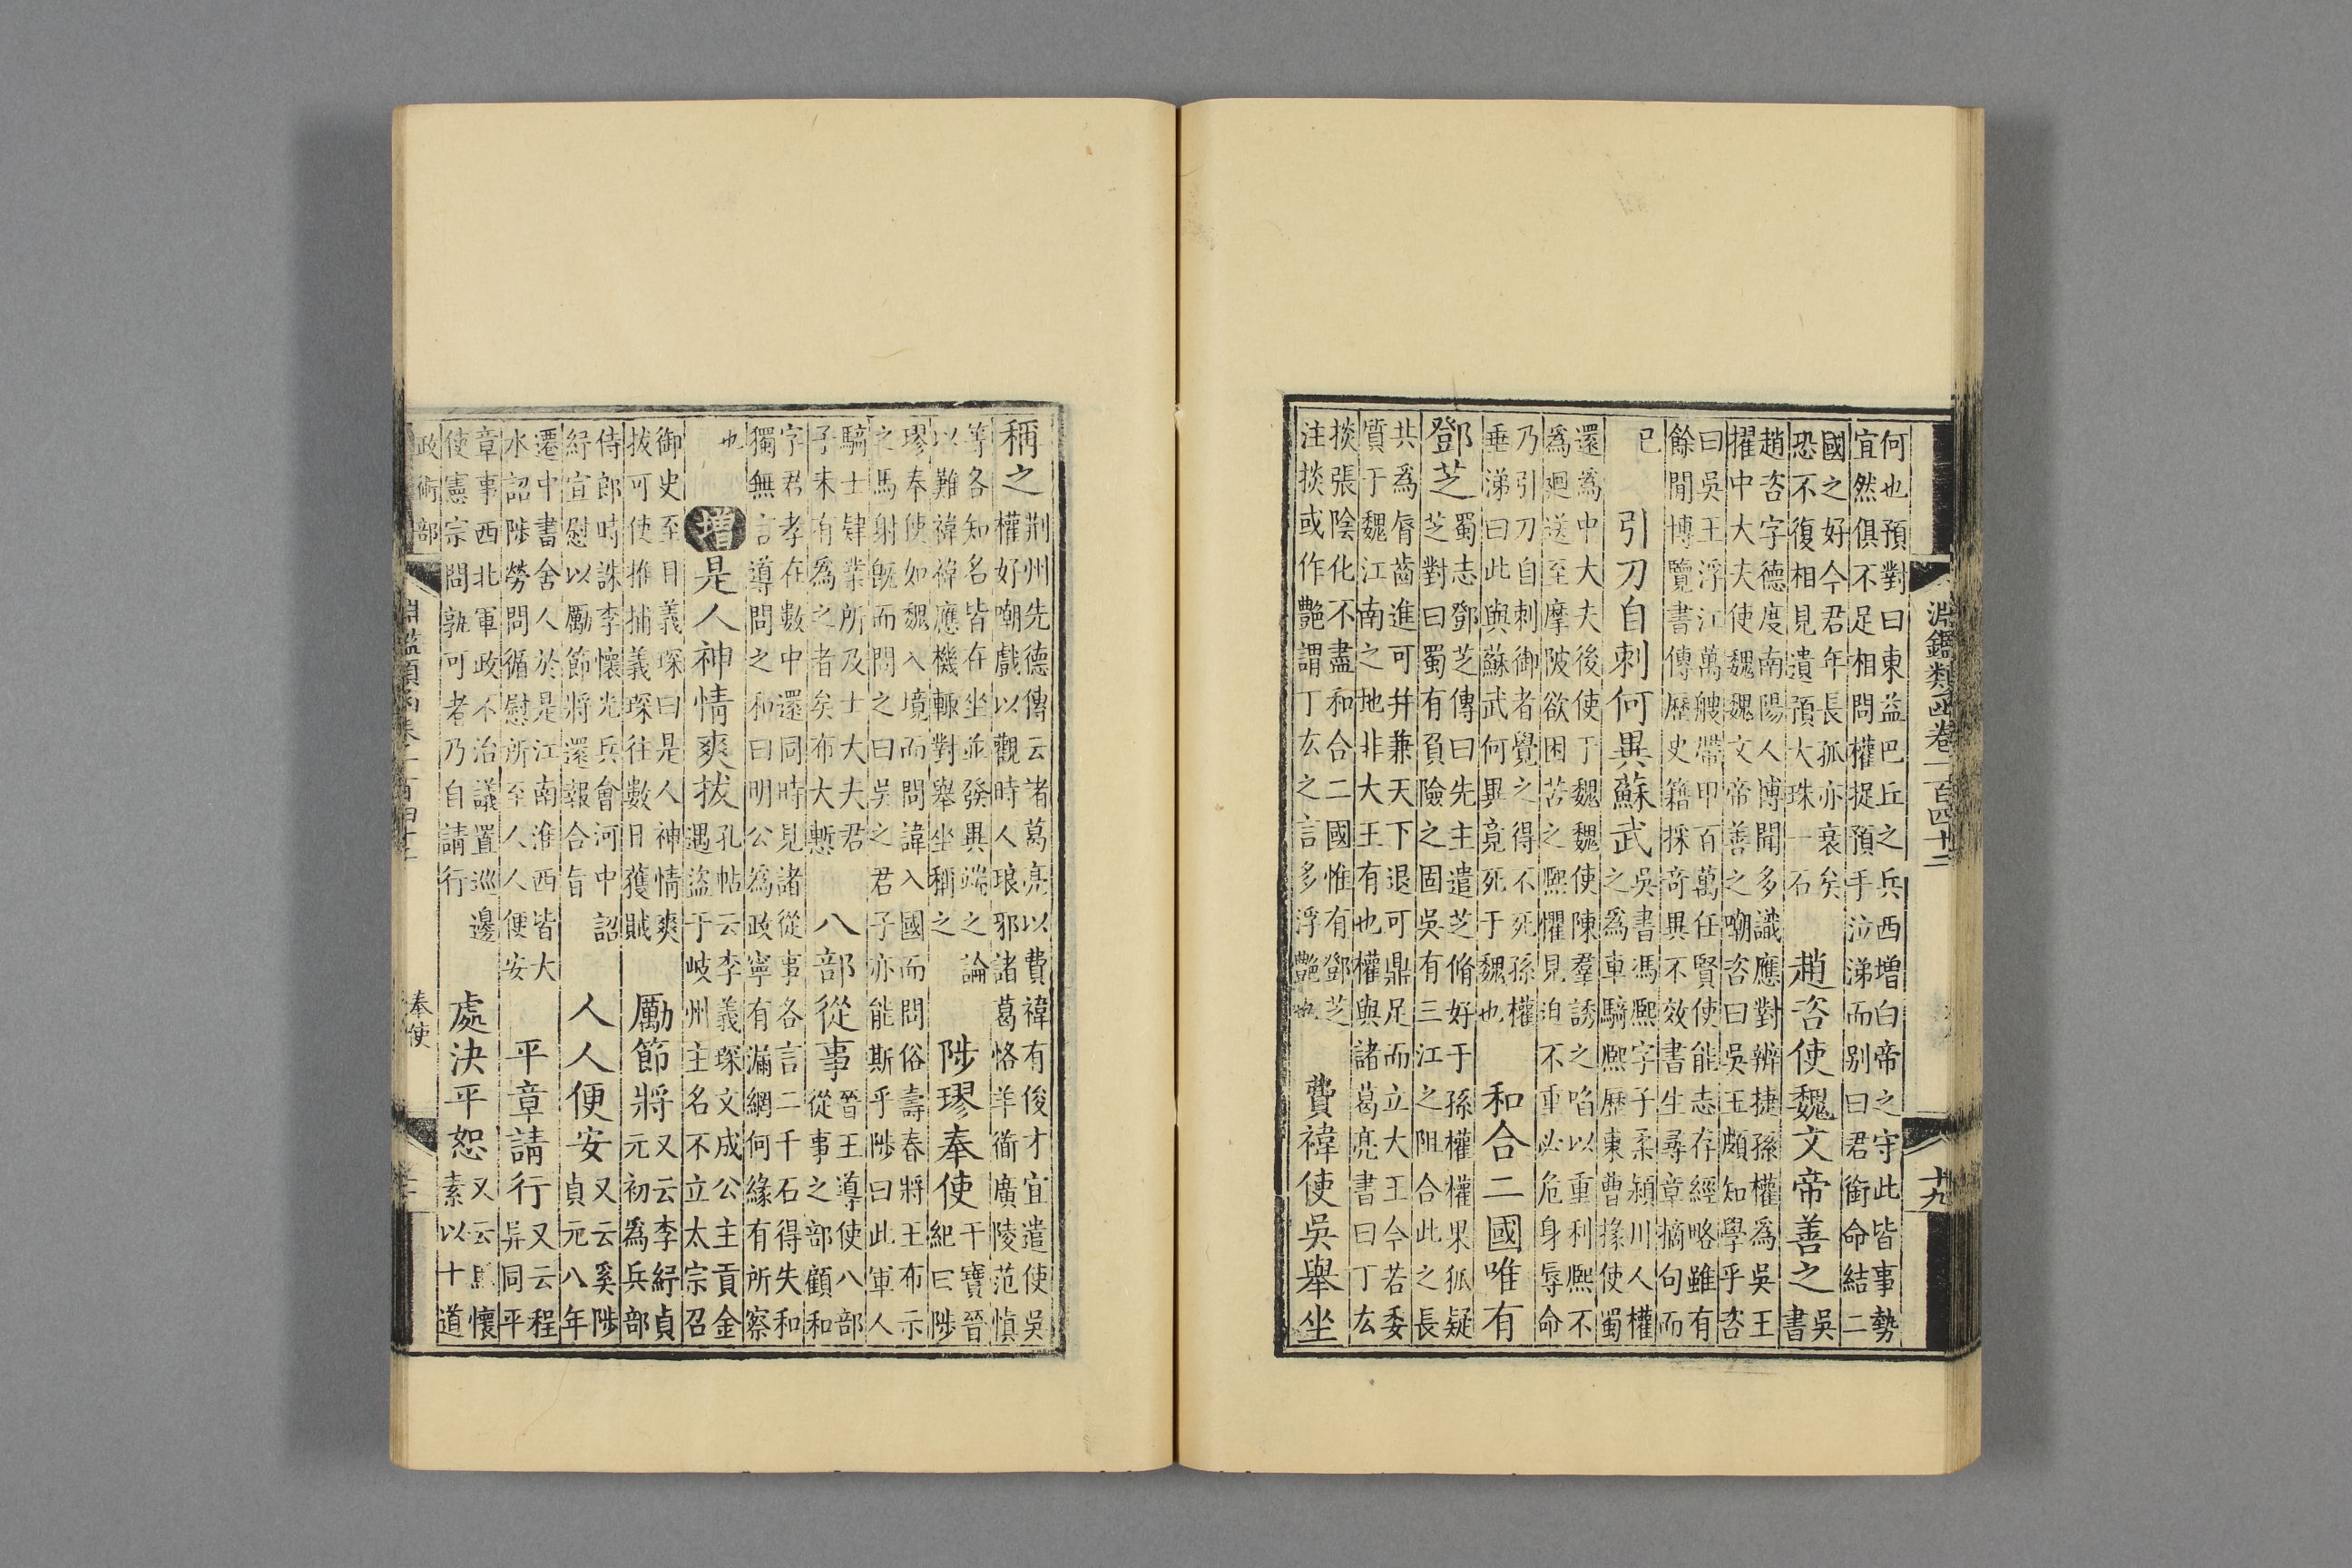 淵鑑類函卷一百四十二
十九
何也預對曰東益巴丘之兵西增白帝之守此皆事勢
宜然俱不足相問權捉預手泣涕而别曰君銜命結二
國之好今君年長孤亦衰矣
恐不復相見遺預大珠一石
趙咨使魏文帝善之
吳
書
趙咨字德度南陽人博聞多識應對辨捷孫權爲吳王
擢中大夫使魏魏文帝善之嘲咨曰吳王頗知學乎咨
曰吳王浮江萬艘帶甲百萬任賢使能志存經略雖有
餘閒博覽書傳歷史籍採奇異不效書生尋章摘句而
已
引刀自刺何異蘇武
吳書馮熙字子柔潁川人權
之爲車騎熙歷東曹掾使蜀
還爲中大夫後使于魏魏使陳羣誘之啗以重利熙不
爲迴送至摩陂欲困苦之熙懼見迫不重必危身辱命
乃引刀自刺御者覺之得不死孫權
垂涕曰此與蘇武何異竟死于魏也
和合二國唯有
鄧芝
蜀志鄧芝傳曰先主遣芝脩好于孫權權果狐疑
芝對曰蜀有負險之固吳有三江之阻合此之長
共爲脣齒進可幷兼天下退可鼎足而立大王今若委
質于魏江南之地非大王有也權與諸葛亮書曰丁厷
掞張陰化不盡和合二國惟有鄧芝
注掞或作艷謂丁厷之言多浮艷也
費禕使吳舉坐
稱之
荆州先德傳云諸葛亮以費禕有俊才宜遣使吳
權好嘲戲以觀時人琅邪諸葛恪羊衜廣陵范愼
等各知名皆在坐並發異端之論
以難禕禕應機輒對舉坐稱之
陟璆奉使
干寶晉
紀曰陟
璆奉使如魏入境而問諱入國而問俗壽春將王布示
之馬射旣而問之曰吳之君子亦能斯乎陟曰此軍人
騎士肄業所及士大夫君
子未有爲之者矣布大慙
八部從事
晉王導使八部
從事之部顧和
字君孝在數中還同時見諸從事各言二千石得失和
獨無言導問之和曰明公爲政寧有漏網何緣有所察
也
增
是人神情爽拔
孔帖云李義琛文成公主貢金
遇盜于岐州主名不立太宗召
御史至目義琛曰是人神情爽
拔可使推捕義琛往數日獲賊
勵節將
又云李紓貞
元初爲兵部
侍郎時誅李懷光兵會河中詔
紓宣慰以勵節將還報合旨
人人便安
又云奚陟
貞元八年
遷中書舍人於是江南淮西皆大
水詔陟勞問循慰所至人人便安
平章請行
又云程
异同平
章事西北軍政不治議置巡邊
使憲宗問孰可者乃自請行
處決平恕
又云馬懷
素以十道
政術部
奉使